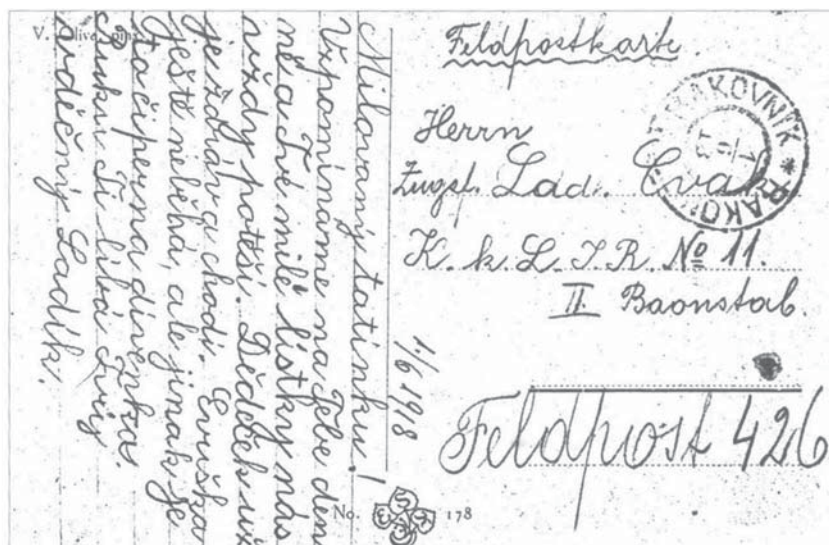 V.
Feldpostkarte.
RAKOVNÍK * RAKO
Herrn
Zugsf. Lad. Cvak
K. k. L. I. R. № 11.
II. Baonstab.
Feldpost 426
1/6 1918
Milovaný tatínku!
Vzpomínáme na Tebe den
ně a Tvé milé lístky nás
vždy potěší. Dědeček už
je zdráv a chodí. Evuška
ještě neběhá, ale jinak je
ta čiperna divenka.
Ruku Ti líbá Tvůj
vděčný Ladík.
No. 178